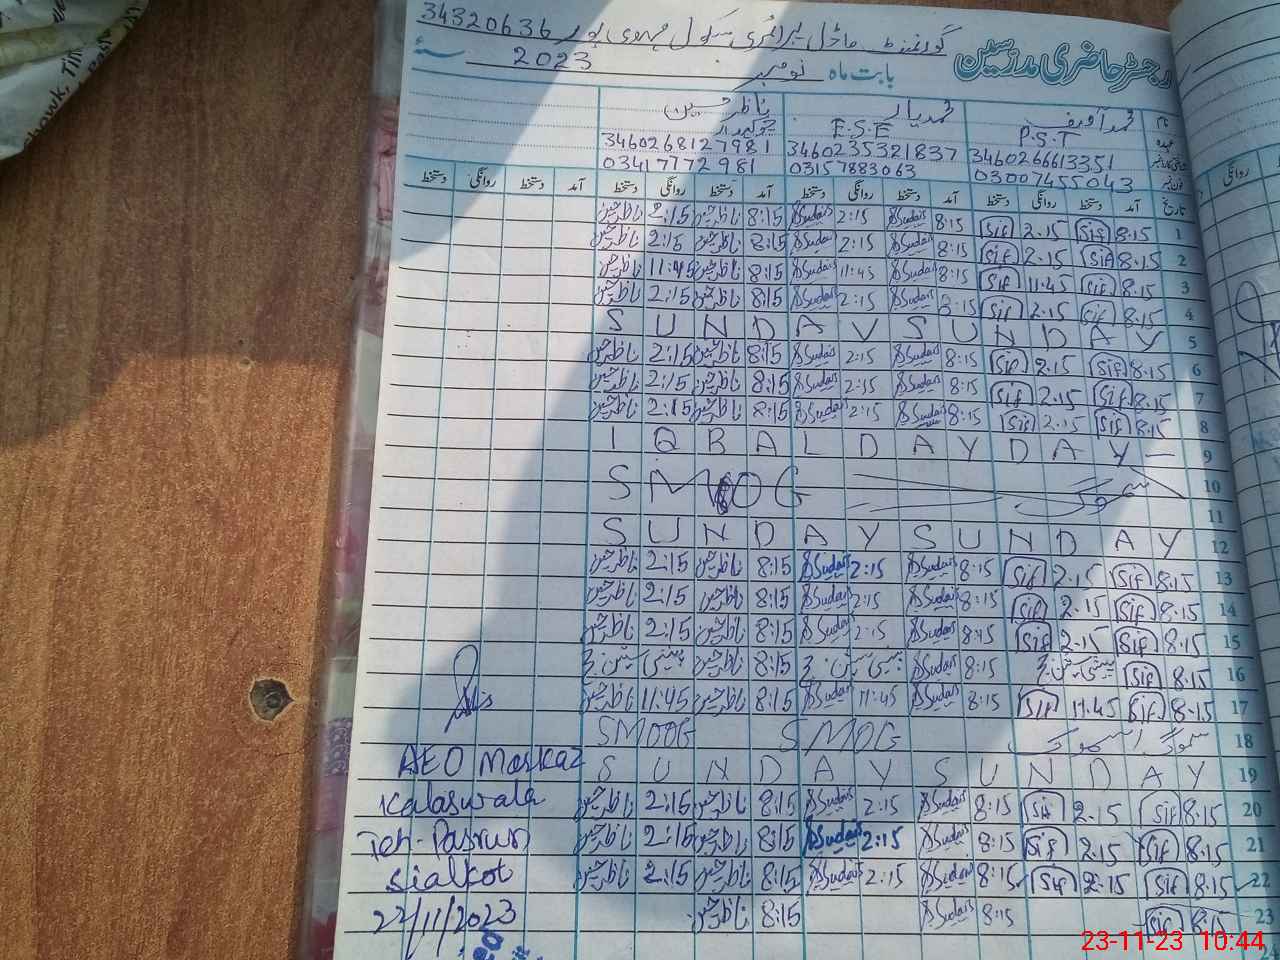 34320636 گورنمنٹ ماڈل پرائمری سکول مہدی پور
رجسٹر حاضری مدرسین بابت ماہ نومبر 2023 سنہ
نام محمد آصف محمد یار ناظر حسین
عہدہ P.S.T E.S.E چوکیدار
3460266613351 3460235321837 3460268127981
03007455043 03157883063 03417772981
تاریخ آمد دستخط روانگی دستخط آمد دستخط روانگی دستخط آمد دستخط روانگی دستخط آمد دستخط روانگی دستخط
1 8:15 Sif 2.15 Sif 8:15 Sudais 2:15 Sudais 8:15 ناظر حسین 2:15 ناظر حسین
2 8.15 Sif 2.15 Sif 8:15 Sudais 2:15 Sudais 8:15 ناظر حسین 2:15 ناظر حسین
3 8.15 Sif 11.45 Sif 8:15 Sudais 11:45 Sudais 8:15 ناظر حسین 11:45 ناظر حسین
4 8.15 Sif 2.15 Sif 8:15 Sudais 2:15 Sudais 8:15 ناظر حسین 2:15 ناظر حسین
5 SUNDAY SUNDAY
6 8.15 Sif 2.15 Sif 8:15 Sudais 2:15 Sudais 8:15 ناظر حسین 2:15 ناظر حسین
7 8.15 Sif 2.15 Sif 8:15 Sudais 2:15 Sudais 8:15 ناظر حسین 2:15 ناظر حسین
8 8.15 Sif 2.15 Sif 8:15 Sudais 2:15 Sudais 8:15 ناظر حسین 2:15 ناظر حسین
9 IQBAL DAY DAY
10 SMOG سموگ
11
12 SUNDAY SUNDAY
13 8:15 Sif 2.15 Sif 8:15 Sudais 2:15 Sudais 8:15 ناظر حسین 2:15 ناظر حسین
14 8.15 Sif 2.15 Sif 8:15 Sudais 2:15 Sudais 8:15 ناظر حسین 2:15 ناظر حسین
15 8.15 Sif 2.15 Sif 8:15 Sudais 2:15 Sudais 8:15 ناظر حسین 2:15 ناظر حسین
16 8.15 Sif 8:15 Sudais 8:15 ناظر حسین
17 8.15 Sif 11.45 Sif 8:15 Sudais 11:45 Sudais 8:15 ناظر حسین 11:45 ناظر حسین
18 SMOOG SMOG سموگ سموگ
19 SUNDAY SUNDAY
20 8.15 Sif 2.15 Sif 8:15 Sudais 2:15 Sudais 8:15 ناظر حسین 2:15 ناظر حسین
21 8.15 Sif 2.15 Sif 8:15 Sudais 2:15 Sudais 8:15 ناظر حسین 2:15 ناظر حسین
22 8.15 Sif 2.15 Sif 8:15 Sudais 2:15 Sudais 8:15 ناظر حسین 2:15 ناظر حسین
23 8.15 Sif 8:15 Sudais 8:15 ناظر حسین
24
AEO Markaz
Kalaswala
Teh. Pasrur
Sialkot
22/11/2023
روانگی
23-11-23 10:44